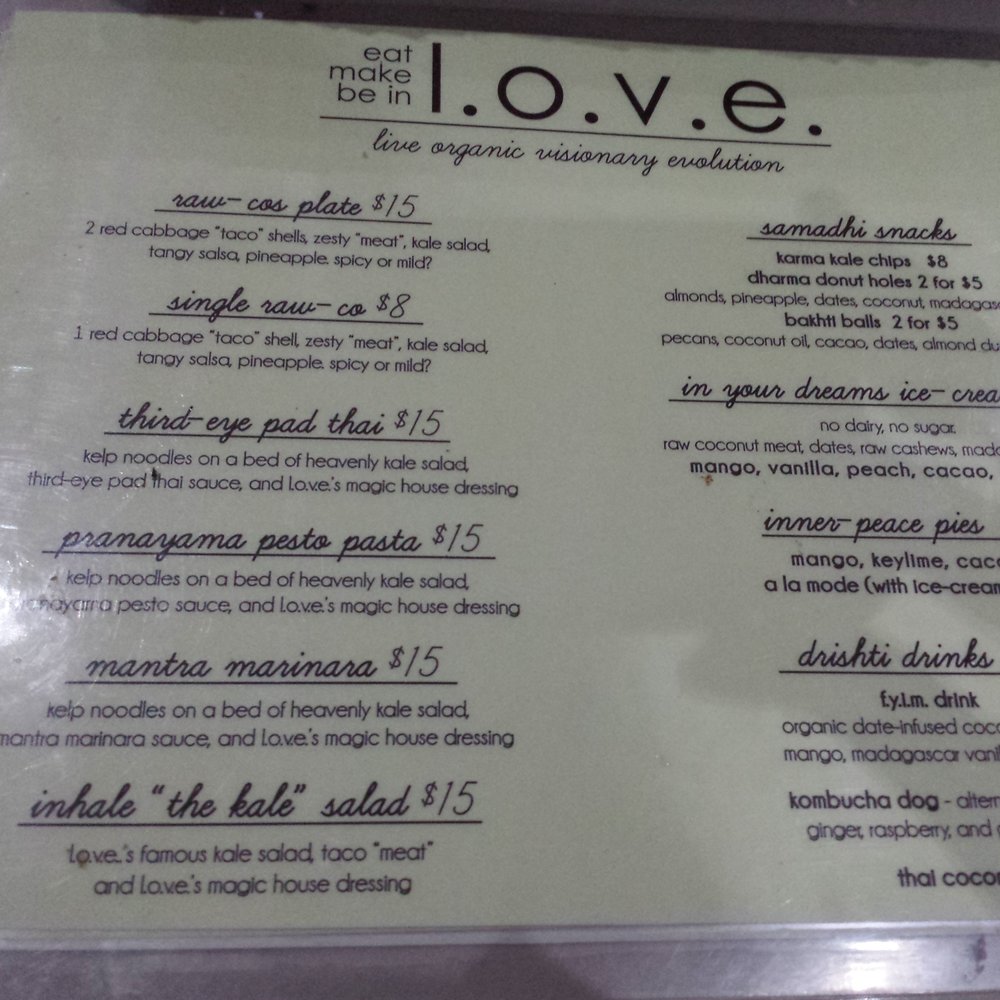 eat
make
be in
l.o.v.e.
live organic visionary evolution
raw-cos plate $15
2 red cabbage "taco" shells, zesty "meat", kale salad,
tangy salsa, pineapple. spicy or mild?
single raw-co $8
1 red cabbage "taco" shell, zesty "meat", kale salad,
tangy salsa, pineapple. spicy or mild?
third-eye pad thai $15
kelp noodles on a bed of heavenly kale salad,
third-eye pad thai sauce, and l.o.v.e.'s magic house dressing
pranayama pesto pasta $15
kelp noodles on a bed of heavenly kale salad,
pesto sauce, and l.o.v.e.'s magic house dressing
mantra marinara $15
kelp noodles on a bed of heavenly kale salad,
mantra marinara sauce, and l.o.v.e.'s magic house dressing
inhale "the kale" salad $15
l.o.v.e.'s famous kale salad, taco "meat"
and l.o.v.e.'s magic house dressing
samadhi snacks
karma kale chips $8
dharma donut holes 2 for $5
almonds, pineapple, dates, coconut,
bakhti balls 2 for $5
pecans, coconut oil, cacao, dates, almond
in your dreams ice-
no dairy, no sugar.
raw coconut meat, dates, raw cashews,
mango, vanilla, peach, cacao,
inner-peace pies
mango, keylime,
a la mode (with
drishti drinks
f.y.i.m. drink
organic date-infused
mango, madagascar
kombucha dog -
ginger, raspberry, and
thai